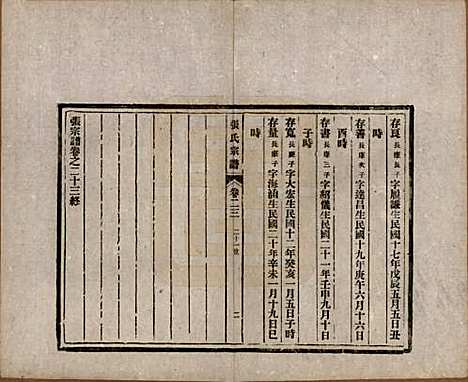 存良長康長子字履謙生民國十七年戊辰五月五日丑
時
存善長康次子字達昌生民國十九年庚午六月十六日
酉時
存書長康三子字紹儀生民國二十一年壬申九月十日
子時
存寬長慶子字大宏生民國十二年癸亥一月五日子時
存量長慶子字海涵生民國二十年辛未一月十九日巳
時
張氏宗譜 卷二三 二十一世 二
張宗譜卷之二十三終